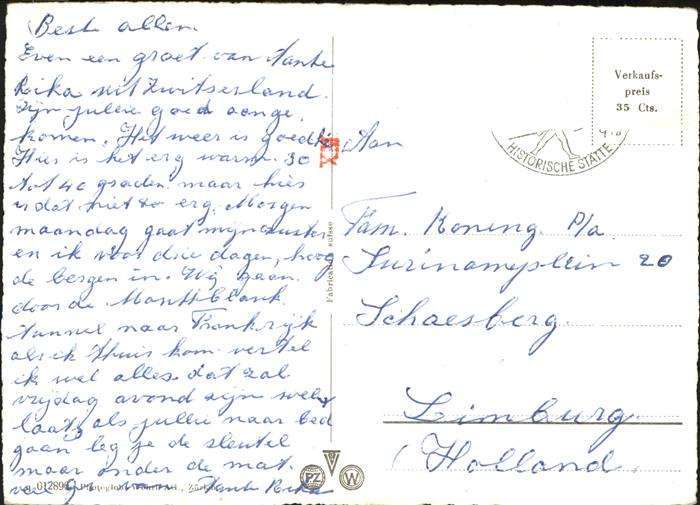 Beste allen.
Even een groet van tante
Rika uit Zwitserland.
Zijn jullie goed aange,
komen. Het weer is goed
Hier is het erg warm. 30
tot 40 graden. maar hier
is dat niet zo erg. Morgen
maandag gaat mijn zuster
en ik voor drie dagen, hoog
de bergen in. Wij gaan.
door de Montblank
tunnel naar Frankrijk
als ik thuis kom. vertel
ik wel alles. dat zal
vrijdag avond zijn wel
laat, als jullie naar bed
gaan leg je de sleutel
maar onder de mat.
veel Tante Rika
012899
Fabrication suisse
PZ
W
Verkaufs-
preis
35 Cts.
HISTORISCHE STÄTTE
Aan
Fam. Koning. P/a
Surinameplein 20
Schaesberg.
Limburg.
Holland.